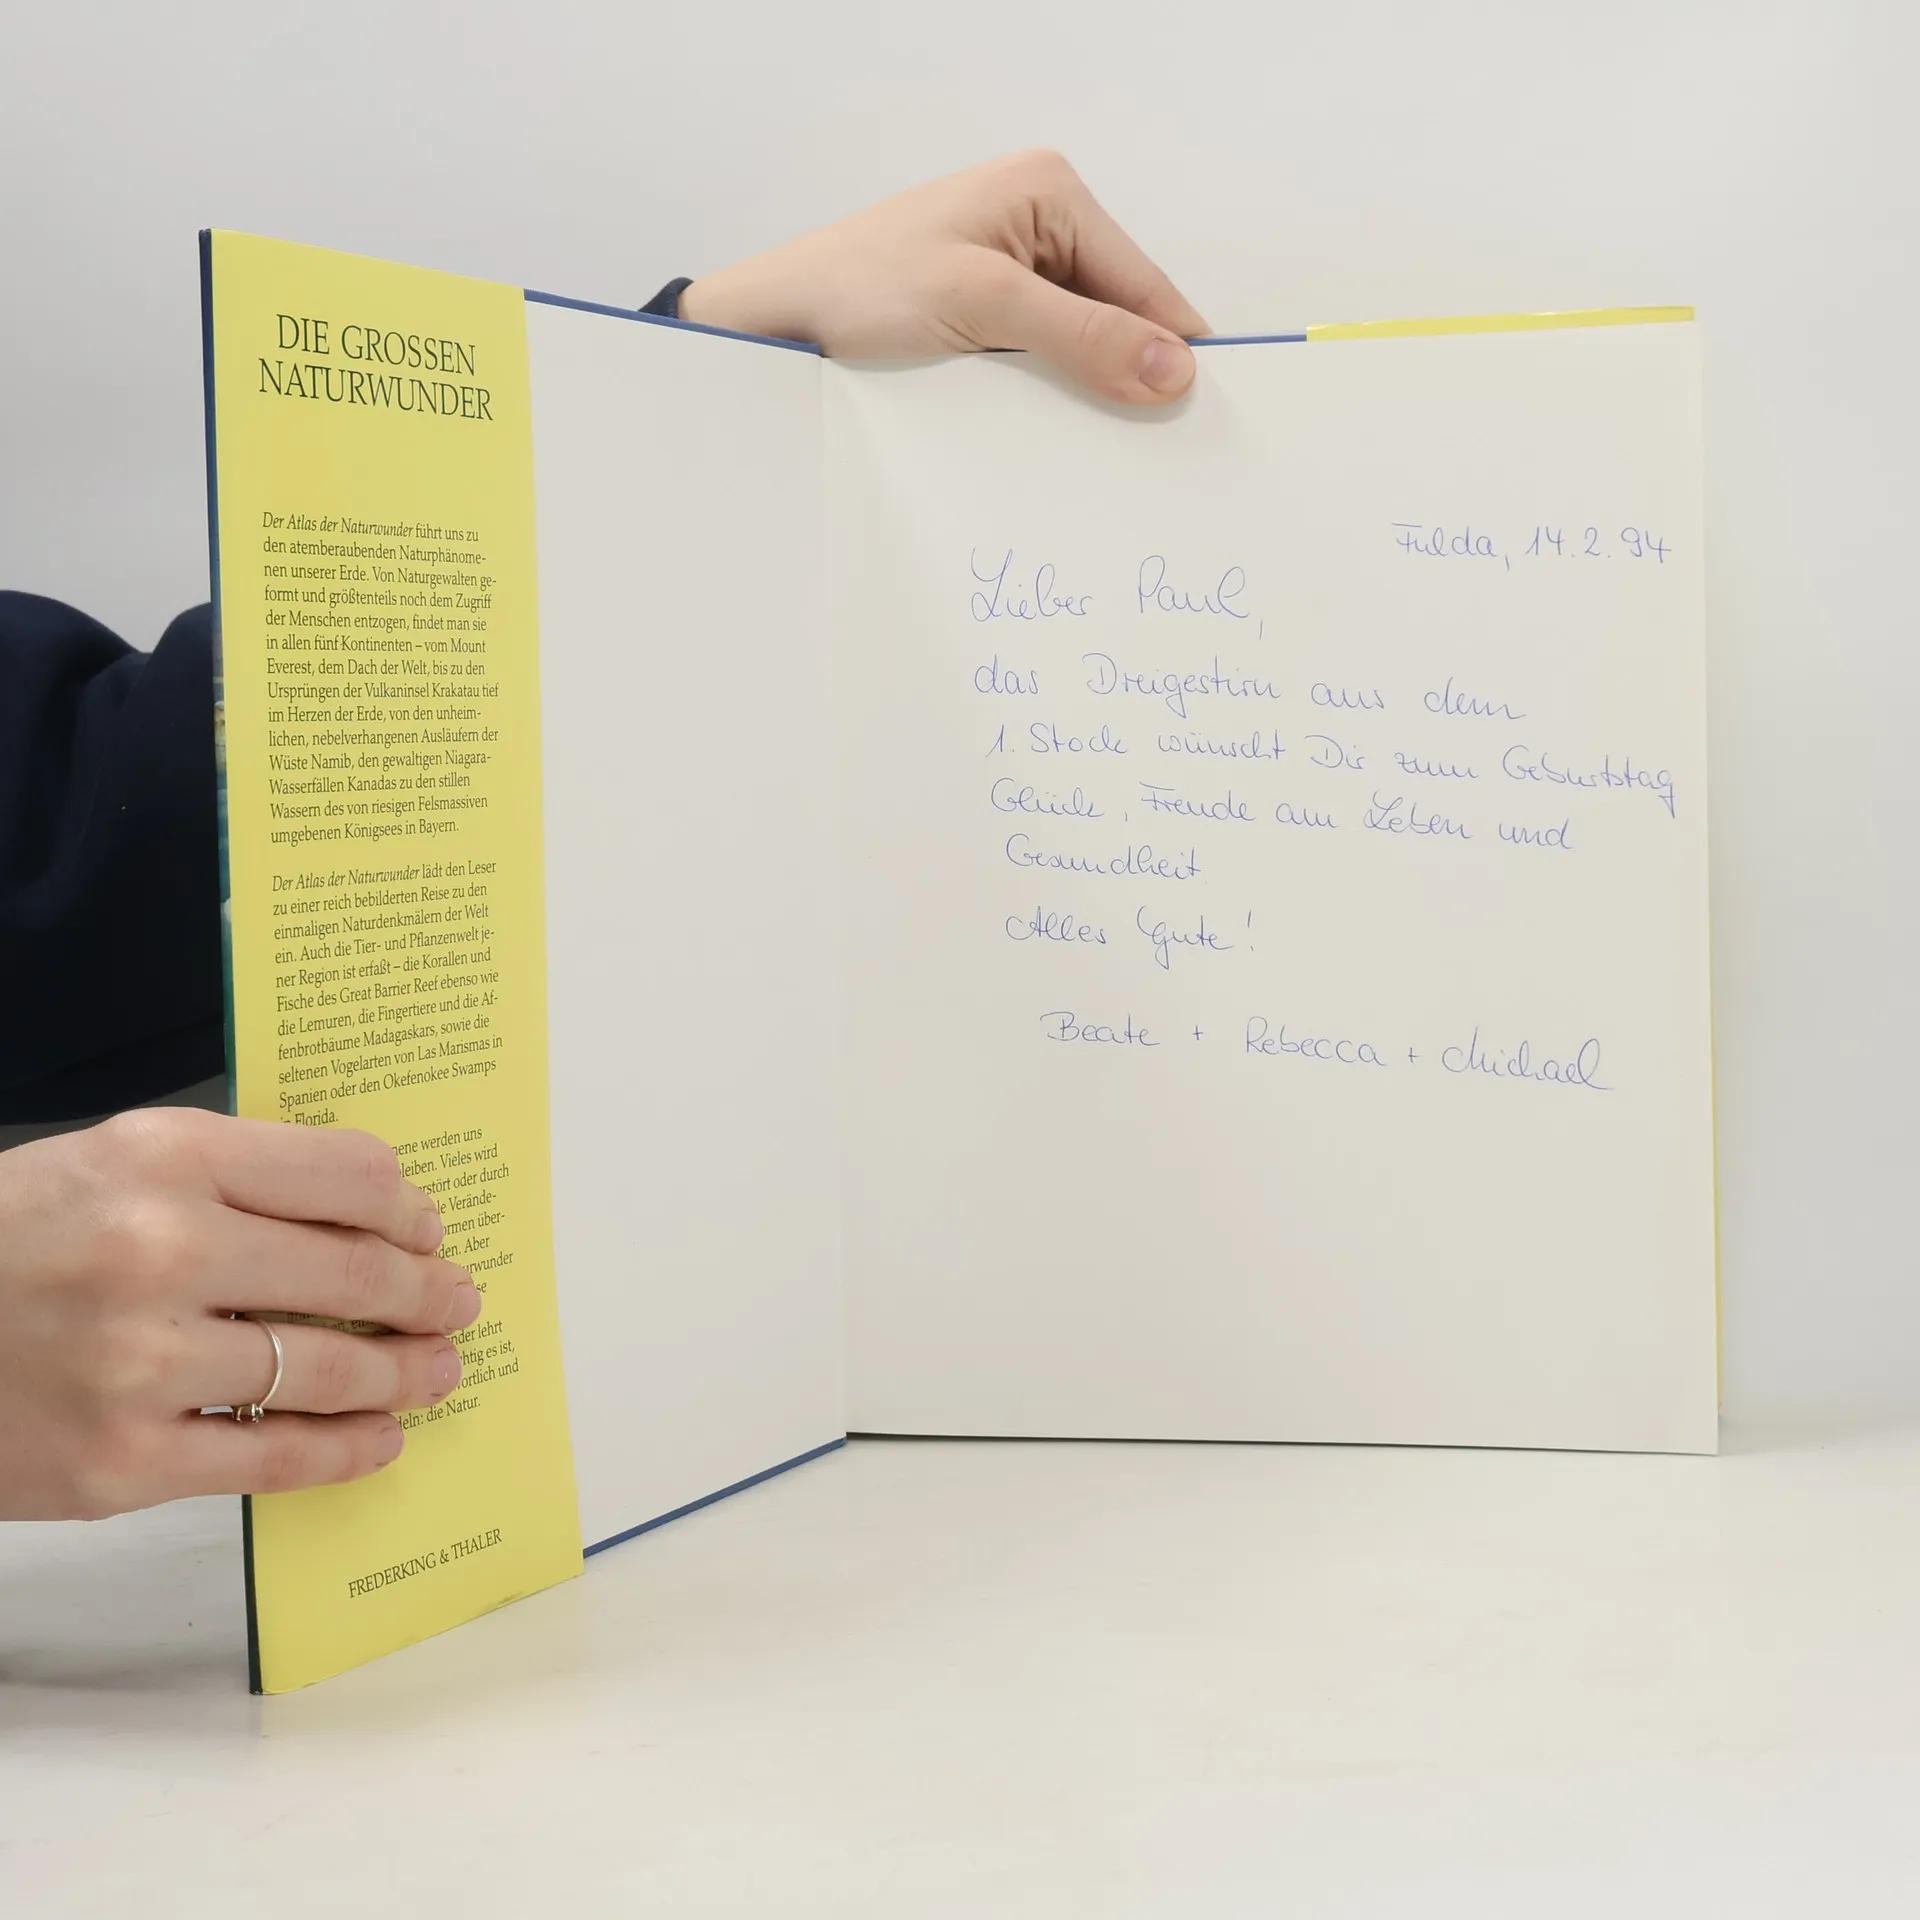 DIE GROSSEN
NATURWUNDER
Der Atlas der Naturwunder führt uns zu
den atemberaubenden Naturphänome-
nen unserer Erde. Von Naturgewalten ge-
formt und größtenteils noch dem Zugriff
der Menschen entzogen, findet man sie
in allen fünf Kontinenten – vom Mount
Everest, dem Dach der Welt, bis zu den
Ursprüngen der Vulkaninsel Krakatau tief
im Herzen der Erde, von den unheim-
lichen, nebelverhangenen Ausläufern der
Wüste Namib, den gewaltigen Niagara-
Wasserfällen Kanadas zu den stillen
Wassern des von riesigen Felsmassiven
umgebenen Königsees in Bayern.
Der Atlas der Naturwunder lädt den Leser
zu einer reich bebilderten Reise zu den
einmaligen Naturdenkmälern der Welt
ein. Auch die Tier- und Pflanzenwelt je-
ner Region ist erfaßt – die Korallen und
Fische des Great Barrier Reef ebenso wie
die Lemuren, die Fingertiere und die Af-
fenbrotbäume Madagaskars, sowie die
seltenen Vogelarten von Las Marismas in
Spanien oder den Okefenokee Swamps
in Florida.
werden uns
Vieles wird
oder durch
Verände-
über-
Aber
lehrt
es ist,
und
die Natur.
FREDERKING & THALER
Fulda, 14.2.94
Lieber Paul,
das Dreigestirn aus dem
1. Stock wünscht Dir zum Geburtstag
Glück, Freude am Leben und
Gesundheit.
Alles Gute!
Beate + Rebecca + Michael